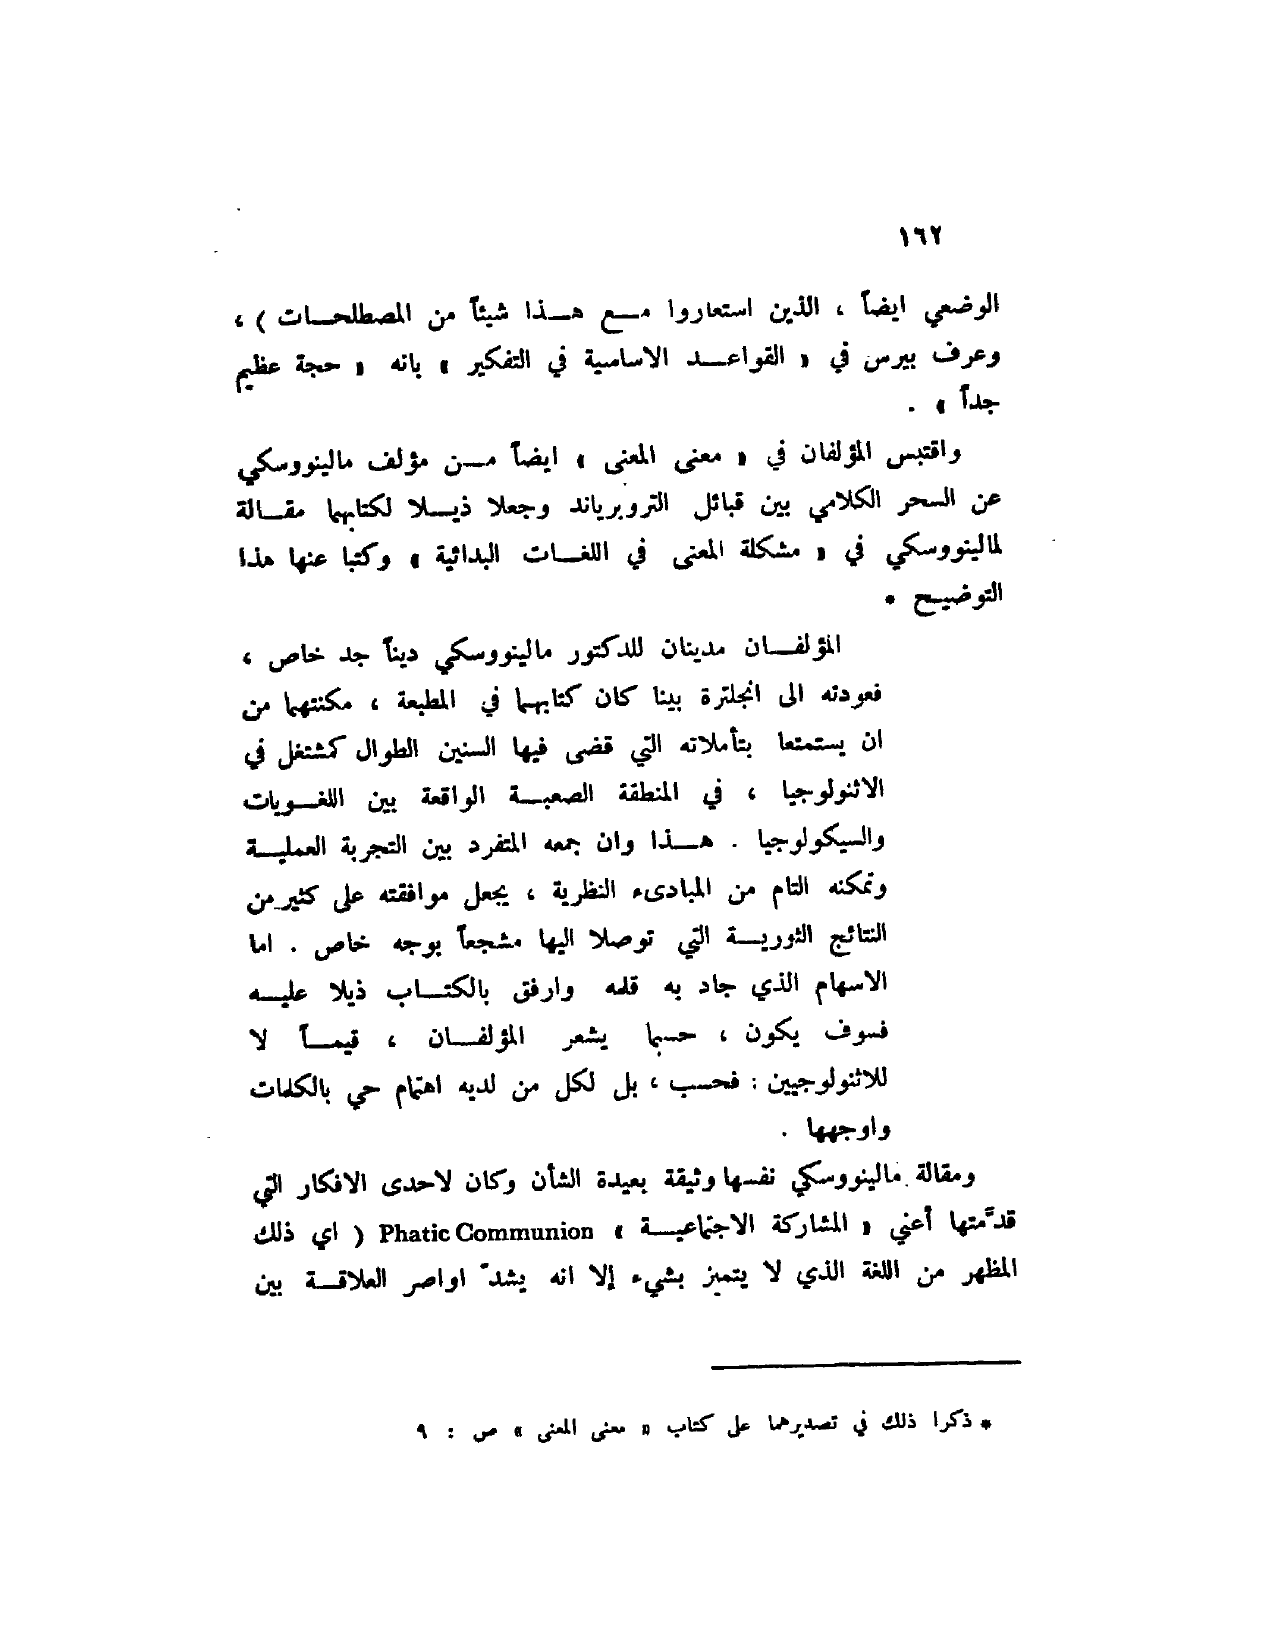 ١٦٢
الوضعي ايضاً ، الذين استعاروا مع هذا شيئاً من المصطلحات ) ،
وعرف بيرس في « القواعد الاساسية في التفكير » بانه « حجة عظيم
جداً » .
واقتبس المؤلفان في « معنى المعنى » ايضاً من مؤلف مالينووسكي
عن السحر الكلامي بين قبائل التروبرياند وجعلا ذيلا لكتابهما مقالة
لمالينووسكي في « مشكلة المعنى في اللغات البدائية » وكتبا عنها هذا
التوضيح *
المؤلفان مدينان للدكتور مالينووسكي ديناً جد خاص ،
فعودته الى انجلترة بينا كان كتابهما في المطبعة ، مكنتهما من
ان يستمتعا بتأملاته التي قضى فيها السنين الطوال كمشتغل في
الاثنولوجيا ، في المنطقة الصعبة الواقعة بين اللغويات
والسيكولوجيا . هذا وان جمعه المتفرد بين التجربة العملية
وتمكنه التام من المبادىء النظرية ، يجعل موافقته على كثير من
النتائج الثورية التي توصلا اليها مشجعاً بوجه خاص . اما
الاسهام الذي جاد به قلمه وارفق بالكتاب ذيلا عليه
فسوف يكون ، حسبما يشعر المؤلفان ، قيماً لا
للاثنولوجيين : فحسب ، بل لكل من لديه اهتمام حي بالكلمات
واوجهها .
ومقالة مالينووسكي نفسها وثيقة بعيدة الشأن وكان لاحدى الافكار التي
قدَّمتها أعني « المشاركة الاجتماعية » Phatic Communion ( اي ذلك
المظهر من اللغة الذي لا يتميز بشيء إلا انه يشدّ اواصر العلاقة بين
* ذكرا ذلك في تصديرهما على كتاب « معنى المعنى » ص : ٩